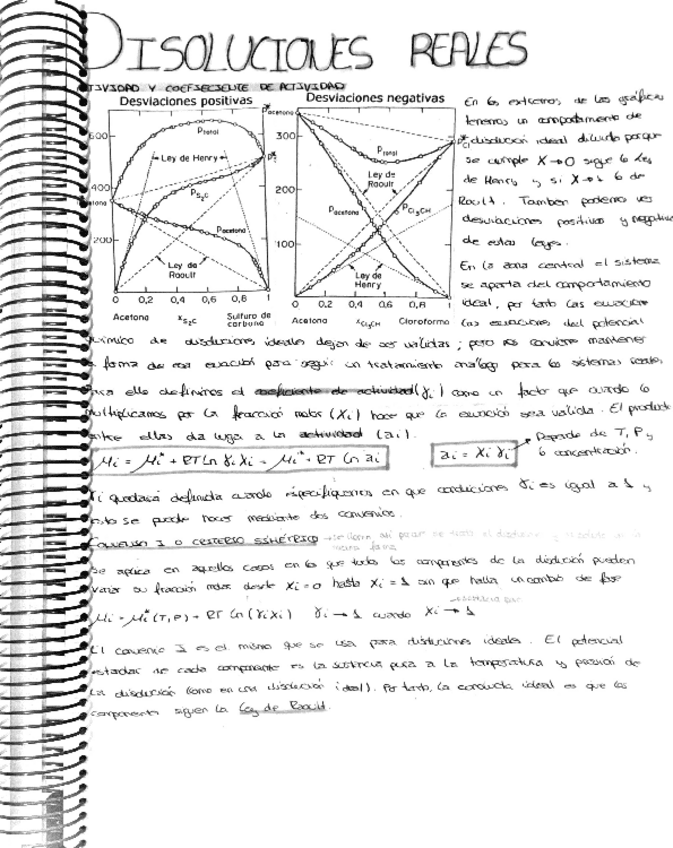 DISOLUCIONES REALES
TIVIDAD Y COEFICIENTE DE ACTIVIDAD
Desviaciones positivas
Desviaciones negativas
P total
Ley de Henry
P S₂C
P acetona
Ley de Raoult
600
400
200
0 0,2 0,4 0,6 0,8 1
Acetona x S₂C Sulfuro de carbono
P* acetona
300
200
100
P total
Ley de Raoult
P acetona
P Cl₃CH
Ley de Henry
0 0,2 0,4 0,6 0,8 1
Acetona x Cl₃CH Cloroformo
En los extremos de las gráficas
tenemos un comportamiento de
disolución ideal diluida porque
se cumple X→0 sigue la Ley
de Henry y si X→1 la de
Raoult. También podemos ver
desviaciones positivas y negativas
de estas leyes.
En la zona central el sistema
se aparta del comportamiento
ideal, por tanto las ecuaciones
las ecuaciones del potencial
químico de disoluciones ideales dejan de ser válidas; pero nos conviene mantener
la forma de esa ecuación para seguir un tratamiento análogo para los sistemas reales.
Para ello definimos el coeficiente de actividad (γi) como un factor que cuando lo
multiplicamos por la fracción molar (Xi) hace que la ecuación sea válida. El producto
entre ellas da lugar a la actividad (ai).
μi = μi* + RT Ln γi Xi = μi* + RT Ln ai
ai = Xi γi → Depende de T, P y la concentración.
γi quedará definida cuando especifiquemos en que condiciones γi es igual a 1 y
esto se puede hacer mediante dos convenios.
CONVENIO I O CRITERIO SIMÉTRICO
misma forma
Se aplica en aquellos casos en los que todos los componentes de la disolución pueden
variar su fracción molar desde Xi = 0 hasta Xi = 1 sin que halla un cambio de fase
μi = μi* (T,P) + RT Ln (γi Xi) γi → 1 cuando Xi → 1
El convenio I es el mismo que se usa para disoluciones ideales. El potencial
estándar de cada componente es la sustancia pura a la temperatura y presión de
la disolución (como en una disolución ideal). Por tanto, la conducta ideal es que los
componentes siguen la Ley de Raoult.